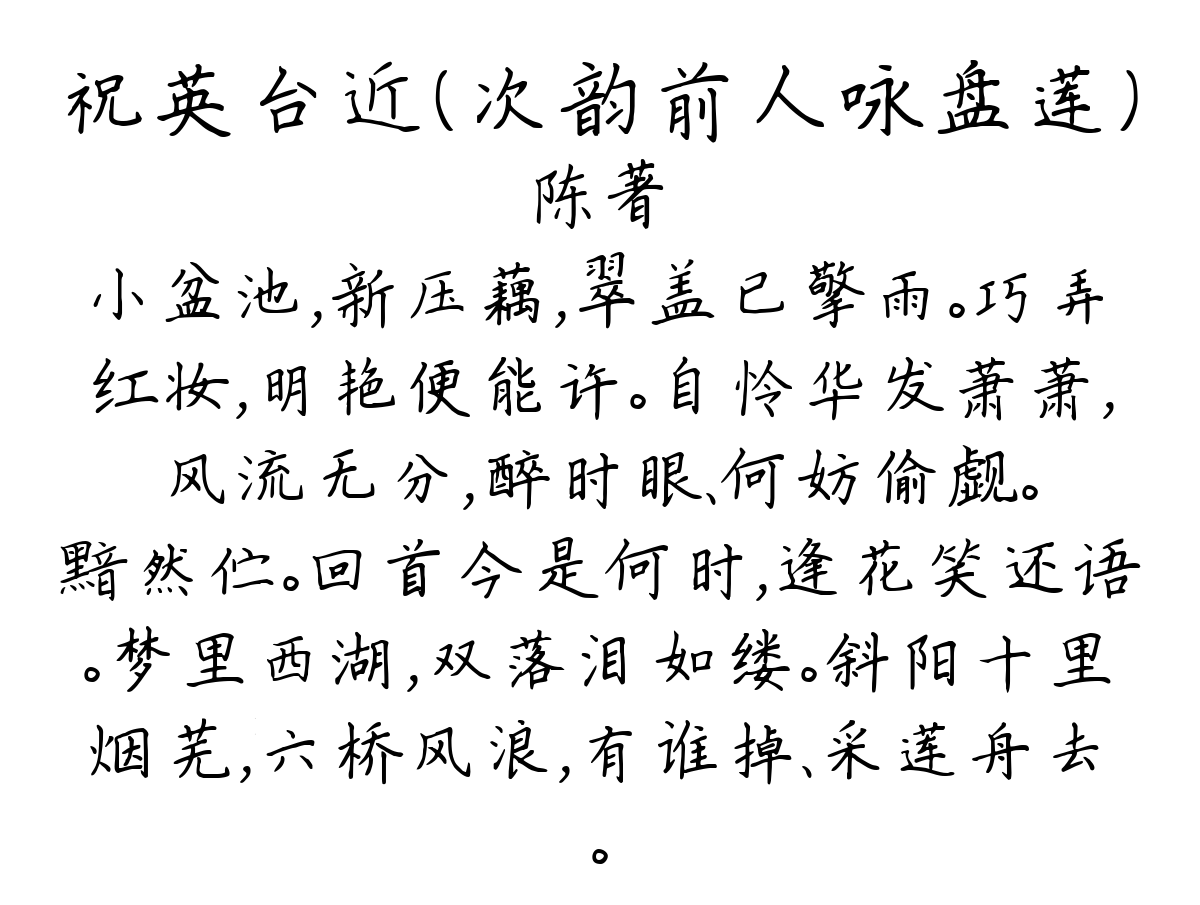 祝英台近(次韵前人咏盘莲)
陈著
小盆池,新压藕,翠盖已擎雨。巧弄
红妆,明艳便能许。自怜华发萧萧,
风流无分,醉时眼、何妨偷觑。
黯然伫。回首今是何时,逢花笑还语
。梦里西湖,双落泪如缕。斜阳十里
烟芜,六桥风浪,有谁掉、采莲舟去
。